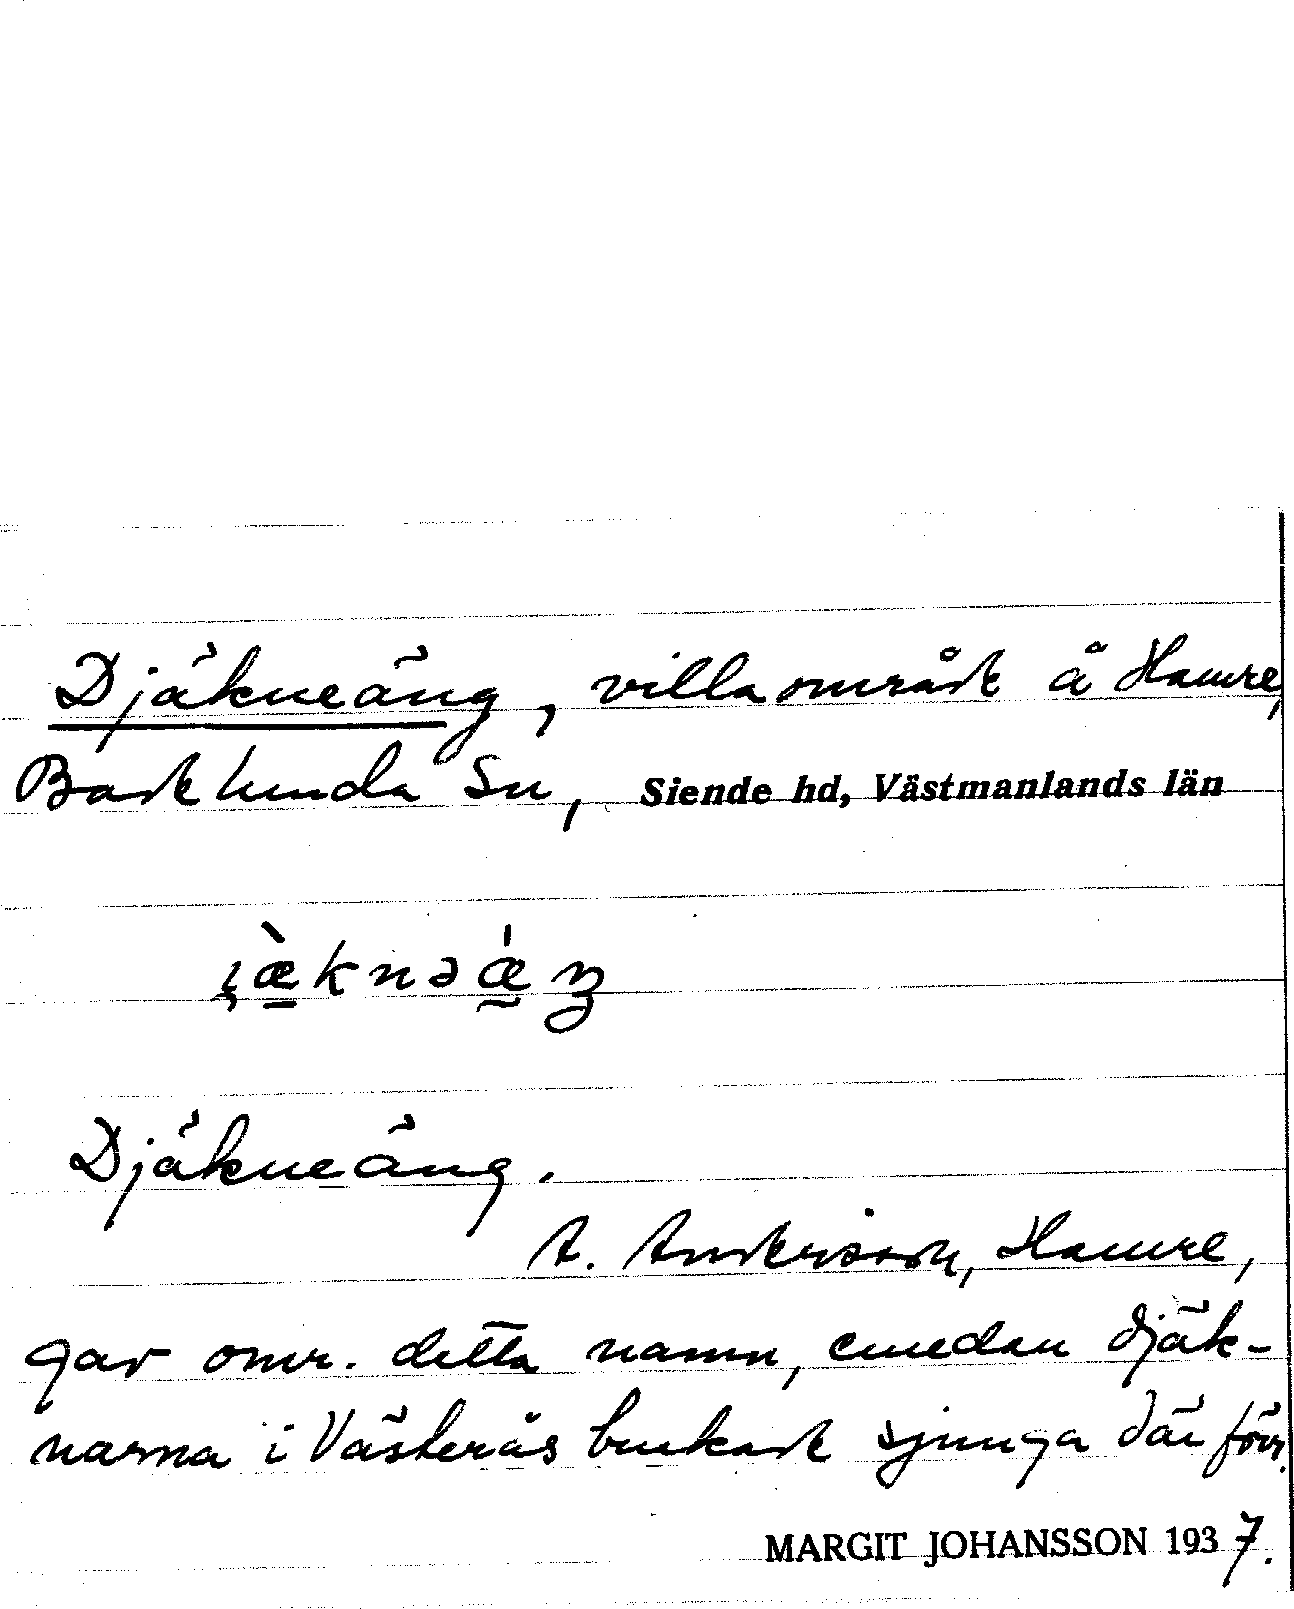 Djäkneäng, villaområde å Hamre,
Badelunda Sn, Siende hd, Västmanlands län
Djäkneäng.
A. Andersson, Hamre,
gav omr. detta namn, emedan djäk-
narna i Västerås brukade sjunga där förr.
MARGIT JOHANSSON 1937.